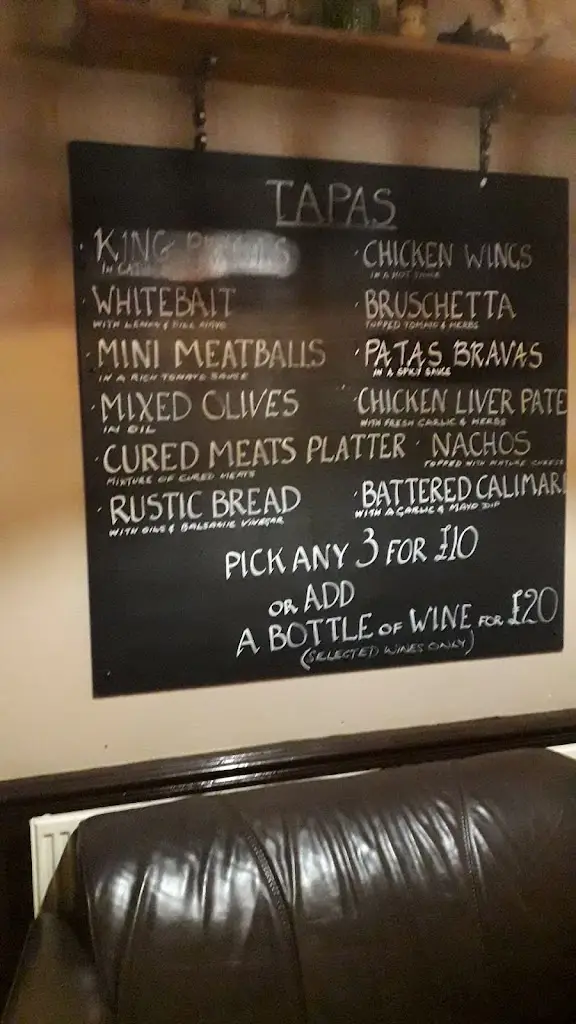 TAPAS
· KING
IN
· WHITEBAIT
WITH LEMON & DILL MAYO
· MINI MEATBALLS
IN A RICH TOMATO SAUCE
· MIXED OLIVES
IN OIL
· CURED MEATS PLATTER
MIXTURE OF CURED MEATS
· RUSTIC BREAD
WITH OILS & BALSAMIC VINEGAR
· CHICKEN WINGS
IN A HOT
· BRUSCHETTA
TOPPED TOMATO & HERBS
· PATAS BRAVAS
IN A SPICY SAUCE
· CHICKEN LIVER PATE
WITH FRESH GARLIC & HERBS
· NACHOS
TOPPED WITH MATURE CHEESE
· BATTERED CALIMARI
WITH A GARLIC & MAYO DIP
PICK ANY 3 FOR £10
OR ADD
A BOTTLE OF WINE FOR £20
(SELECTED WINES ONLY)